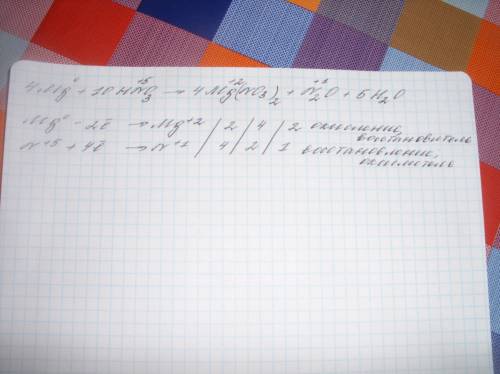 4Mg⁰ + 10HN⁺⁵O₃ → 4Mg⁺²(NO₃)₂ + N⁺¹₂O + 5H₂O
Mg⁰ - 2ē → Mg⁺² / 2 / 4 / 2 окисление, восстановитель
N⁺⁵ + 4ē → N⁺¹ / 4 / 2 / 1 восстановление, окислитель